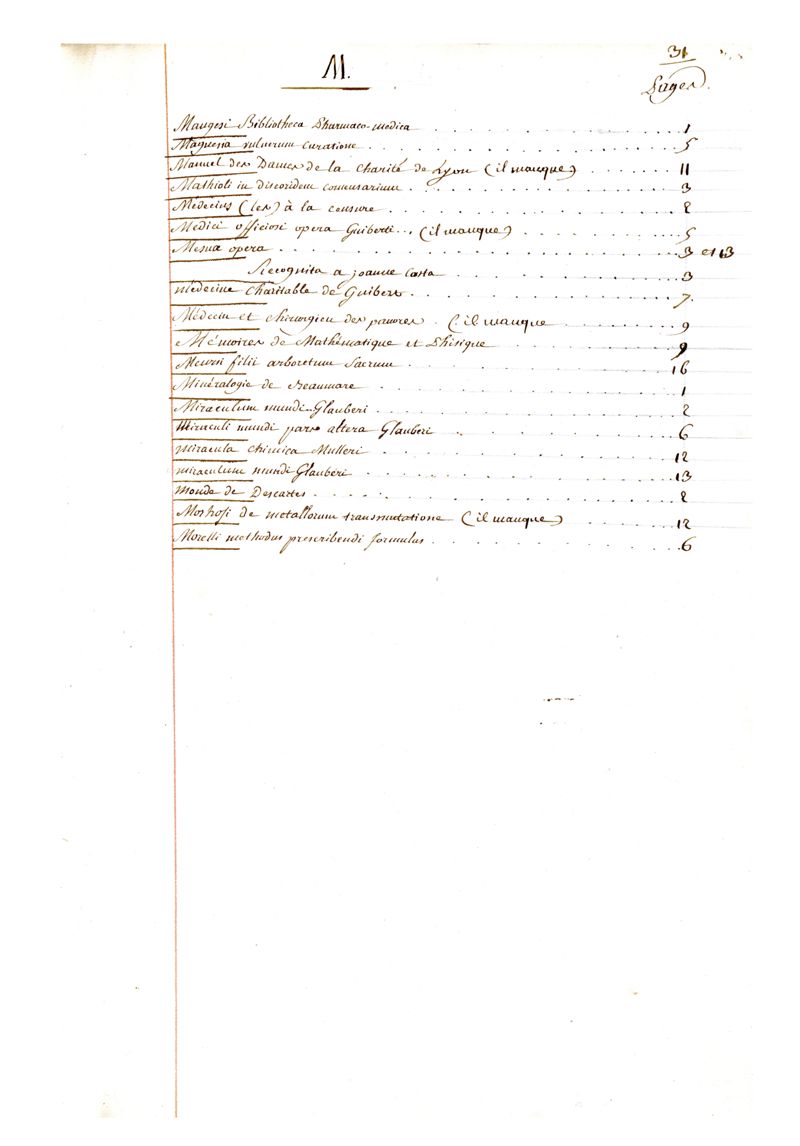 31
M.
Pages.
Mangesi Bibliotheca Pharmaco-medica . . . 1
Magnesia vulnerum curatione . . . 5
Manuel des Dames de la Charité de Lyon (il manque) . . . 11
Mathioli in discoridem commentarium . . . 3
Médecins (les) à la censure . . . 2
Medici officiosi opera Guiberti . . (il manque) . . . 5
Mesua opera . . . 3 et 13
Recognita a joanne Costa . . . 3
médecine charitable de Guibert . . . 7.
Médecin et chirurgien des pauvres . (il manque . . . 9
Mémoires de Mathématique et Phisique . . . 9
Meursi filii arboretum Sacrum . . . 16
Minéralogie de Beaumare . . . 1
Miraculum mundi Glauberi . . . 2
Miraculi mundi pars altera Glauberi . . . 6
miracula chimica Mulleri . . . 12
miraculum mundi Glauberi . . . 13
monde de Descartes . . . 2
Morhofi de metallorum transmutatione (il manque) . . . 12
Morelli methodus prescribendi formulas . . . 6